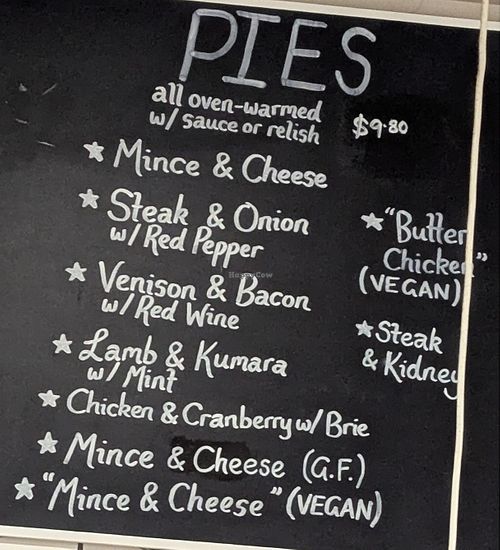 PIES
all oven-warmed
w/ sauce or relish
$9.80
Mince & Cheese
Steak & Onion
w/ Red Pepper
Venison & Bacon
w/ Red Wine
Lamb & Kumara
w/ Mint
Chicken & Cranberry w/ Brie
Mince & Cheese (G.F.)
"Mince & Cheese" (VEGAN)
"Butter
Chicken"
(VEGAN)
Steak
& Kidney
HappyCow